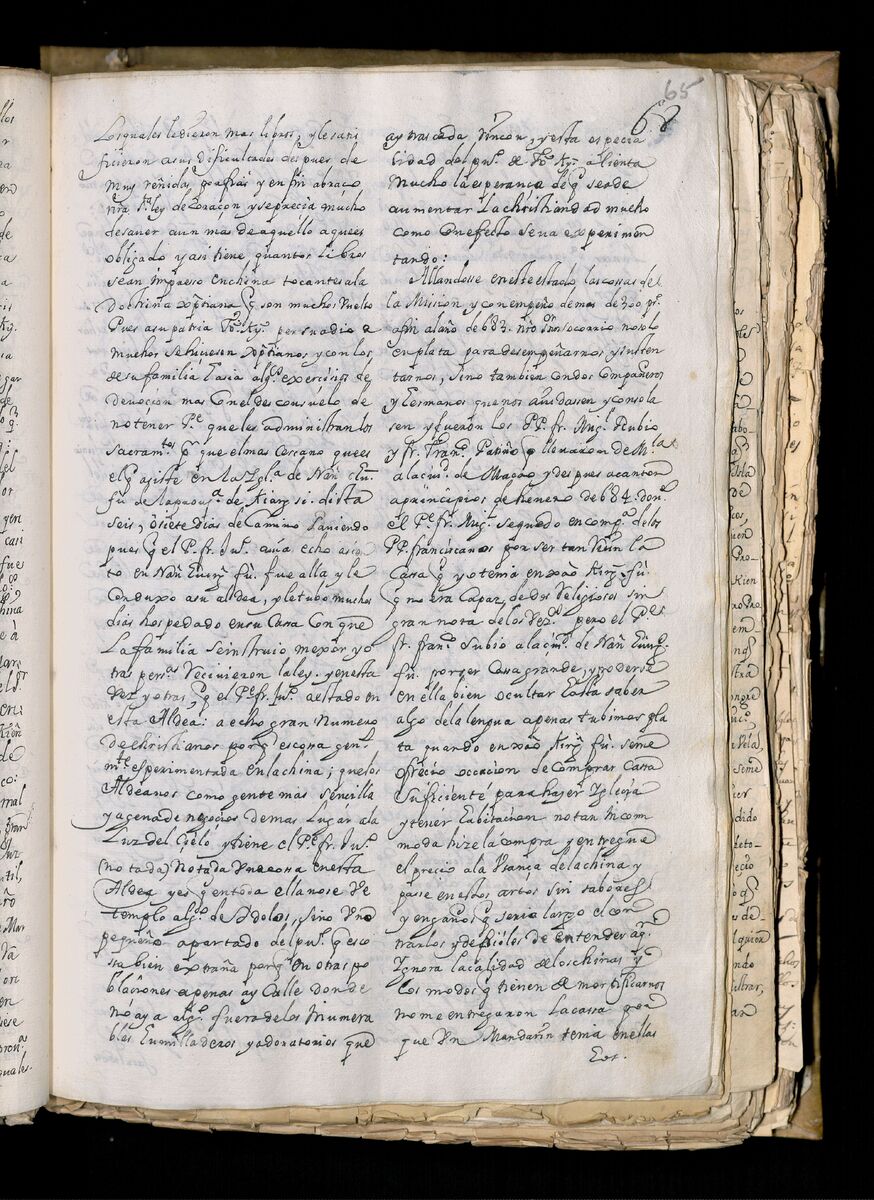 65
68
Losquales ledieron mas libros, y le sati
ficieron asus dificultades despues de
muy reñidas porfias y en fin abraço
nra sta ley de coraçon y seprecia mucho
desauer aun mas de aquello aquees
obligado y asi tiene quantos libros
sean impreso enchina tocantes ala
Doctrina xptiana q son muchos vuelto
Pues asu patria persuadio a
muchos sehiciesen xptianos y con los
de su familia hacia algs exercicios de
deuocion mas con el desconsuelo de
no tener Pe que les administran los
sacramtos pr que el mas cercano que es
el q asiste en la Igla de Nan
fu de la prouca de Kiang si. dista
seis, o siete dias de camino Pareciendo
pues q el P. fr. Ju. auia echo asien
to en Nan fu. fue alla y le
conduxo asu aldea, y letubo muchos
dias hospedado en su Cassa con que
La familia seinstruio mexor y o
tras persas Reciuieron la ley. y en esta
vez y otras, q el Pe fr. Ju. a estado en
esta Aldea: a echo gran numero
de christianos porq es cosa genl
mte esperimentada en la china; quelos
Aldeanos como gente mas sencilla
y agena de negocios de mas lugar ala
Luz del Cielo, y tiene el Pe fr. Ju.
(notada) Notada una cosa en esta
Aldea y es q en toda ella no se ve
templo algo de Idolos, sino uno
pequeño apartado del pue. q es co
sa bien extraña porq en otras po
blaciones apenas ay Calle donde
no aya algo fuera de los inumera
bles Eumilladeros y adoratorios que
ay tras cada rincon, y esta especia
lidad del pue. de alienta
mucho la esperança de q se ade
aumentar La christiandad mucho
como en efecto se ua experimen
tando:
Allandosse en este estado las cossas de
la Mission y con empeño de mas de 300. ps.
afin al año de 683. nro sr nos socorrio no solo
en plata para desempeñarnos y susten
tarnos, sino tambien con dos Compañeros
y Ermanos que nos aiudassen y consola
sen y fueron los PP. fr. Migl Rubio
y fr. Frano Patiño q llegaron de Mla
ala ciud. de Macao y despues a canton
aprincipios de henero de 684. donde
el Pe fr. Migl se quedo en compa de los
PP. franciscanos por ser tan ruin la
Cassa q yo tenia en xao King fu.
q no era capaz, de dos Religiosos sin
gran nota de los Vezs. pero el Pe
fr. frano subio ala ciud. de Nan
fu. por ser Cassa grande, y poderse
en ella bien ocultar Easta saber
algo dela lengua apenas tubimos pla
ta quando en xao King fu. seme
ofrecio occacion de comprar cassa
suficiente para hazer Iglesia
y tener Eabitacion no tan incom
moda hize la compra y entregue
el precio ala vsança dela china y
passe en estos artos sin sabores
y engaños q seria largo el con
trarlos y dificiles de entender aq.
Ignora la calidad de los chinas y
los modos q tienen de mortificarnos
no me entregaron la cassa por
que vn Mandarin tenia en ellas
Eos.